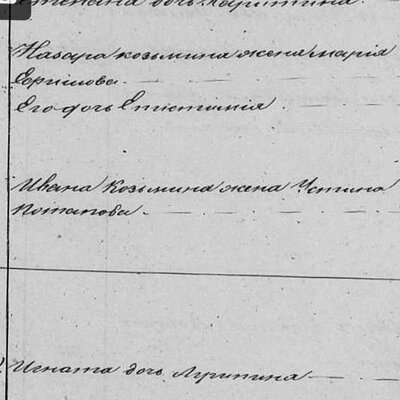 дочь Харитина.
Назара козьмина жена марія
Ефимова.
Его дочь Епистимія.
Ивана Козьмина жена Устина
Потапова.
Игната дочь Агрипина